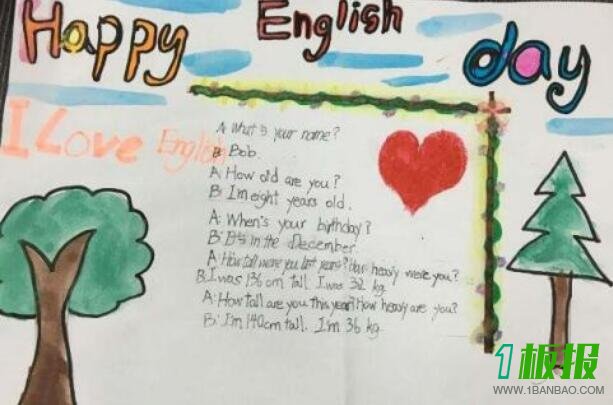 Happy English day
I Love English
A: What's your name?
B: Bob.
A: How old are you?
B: I'm eight years old.
A: When's your birthday?
B: It's in the December.
A: How tall were you last years? How heavy were you?
B: I was 136 cm tall. I was 32 kg.
A: How tall are you this year? How heavy are you?
B: I'm 140cm tall. I'm 36 kg.
1板报
WWW.1BANBAO.COM